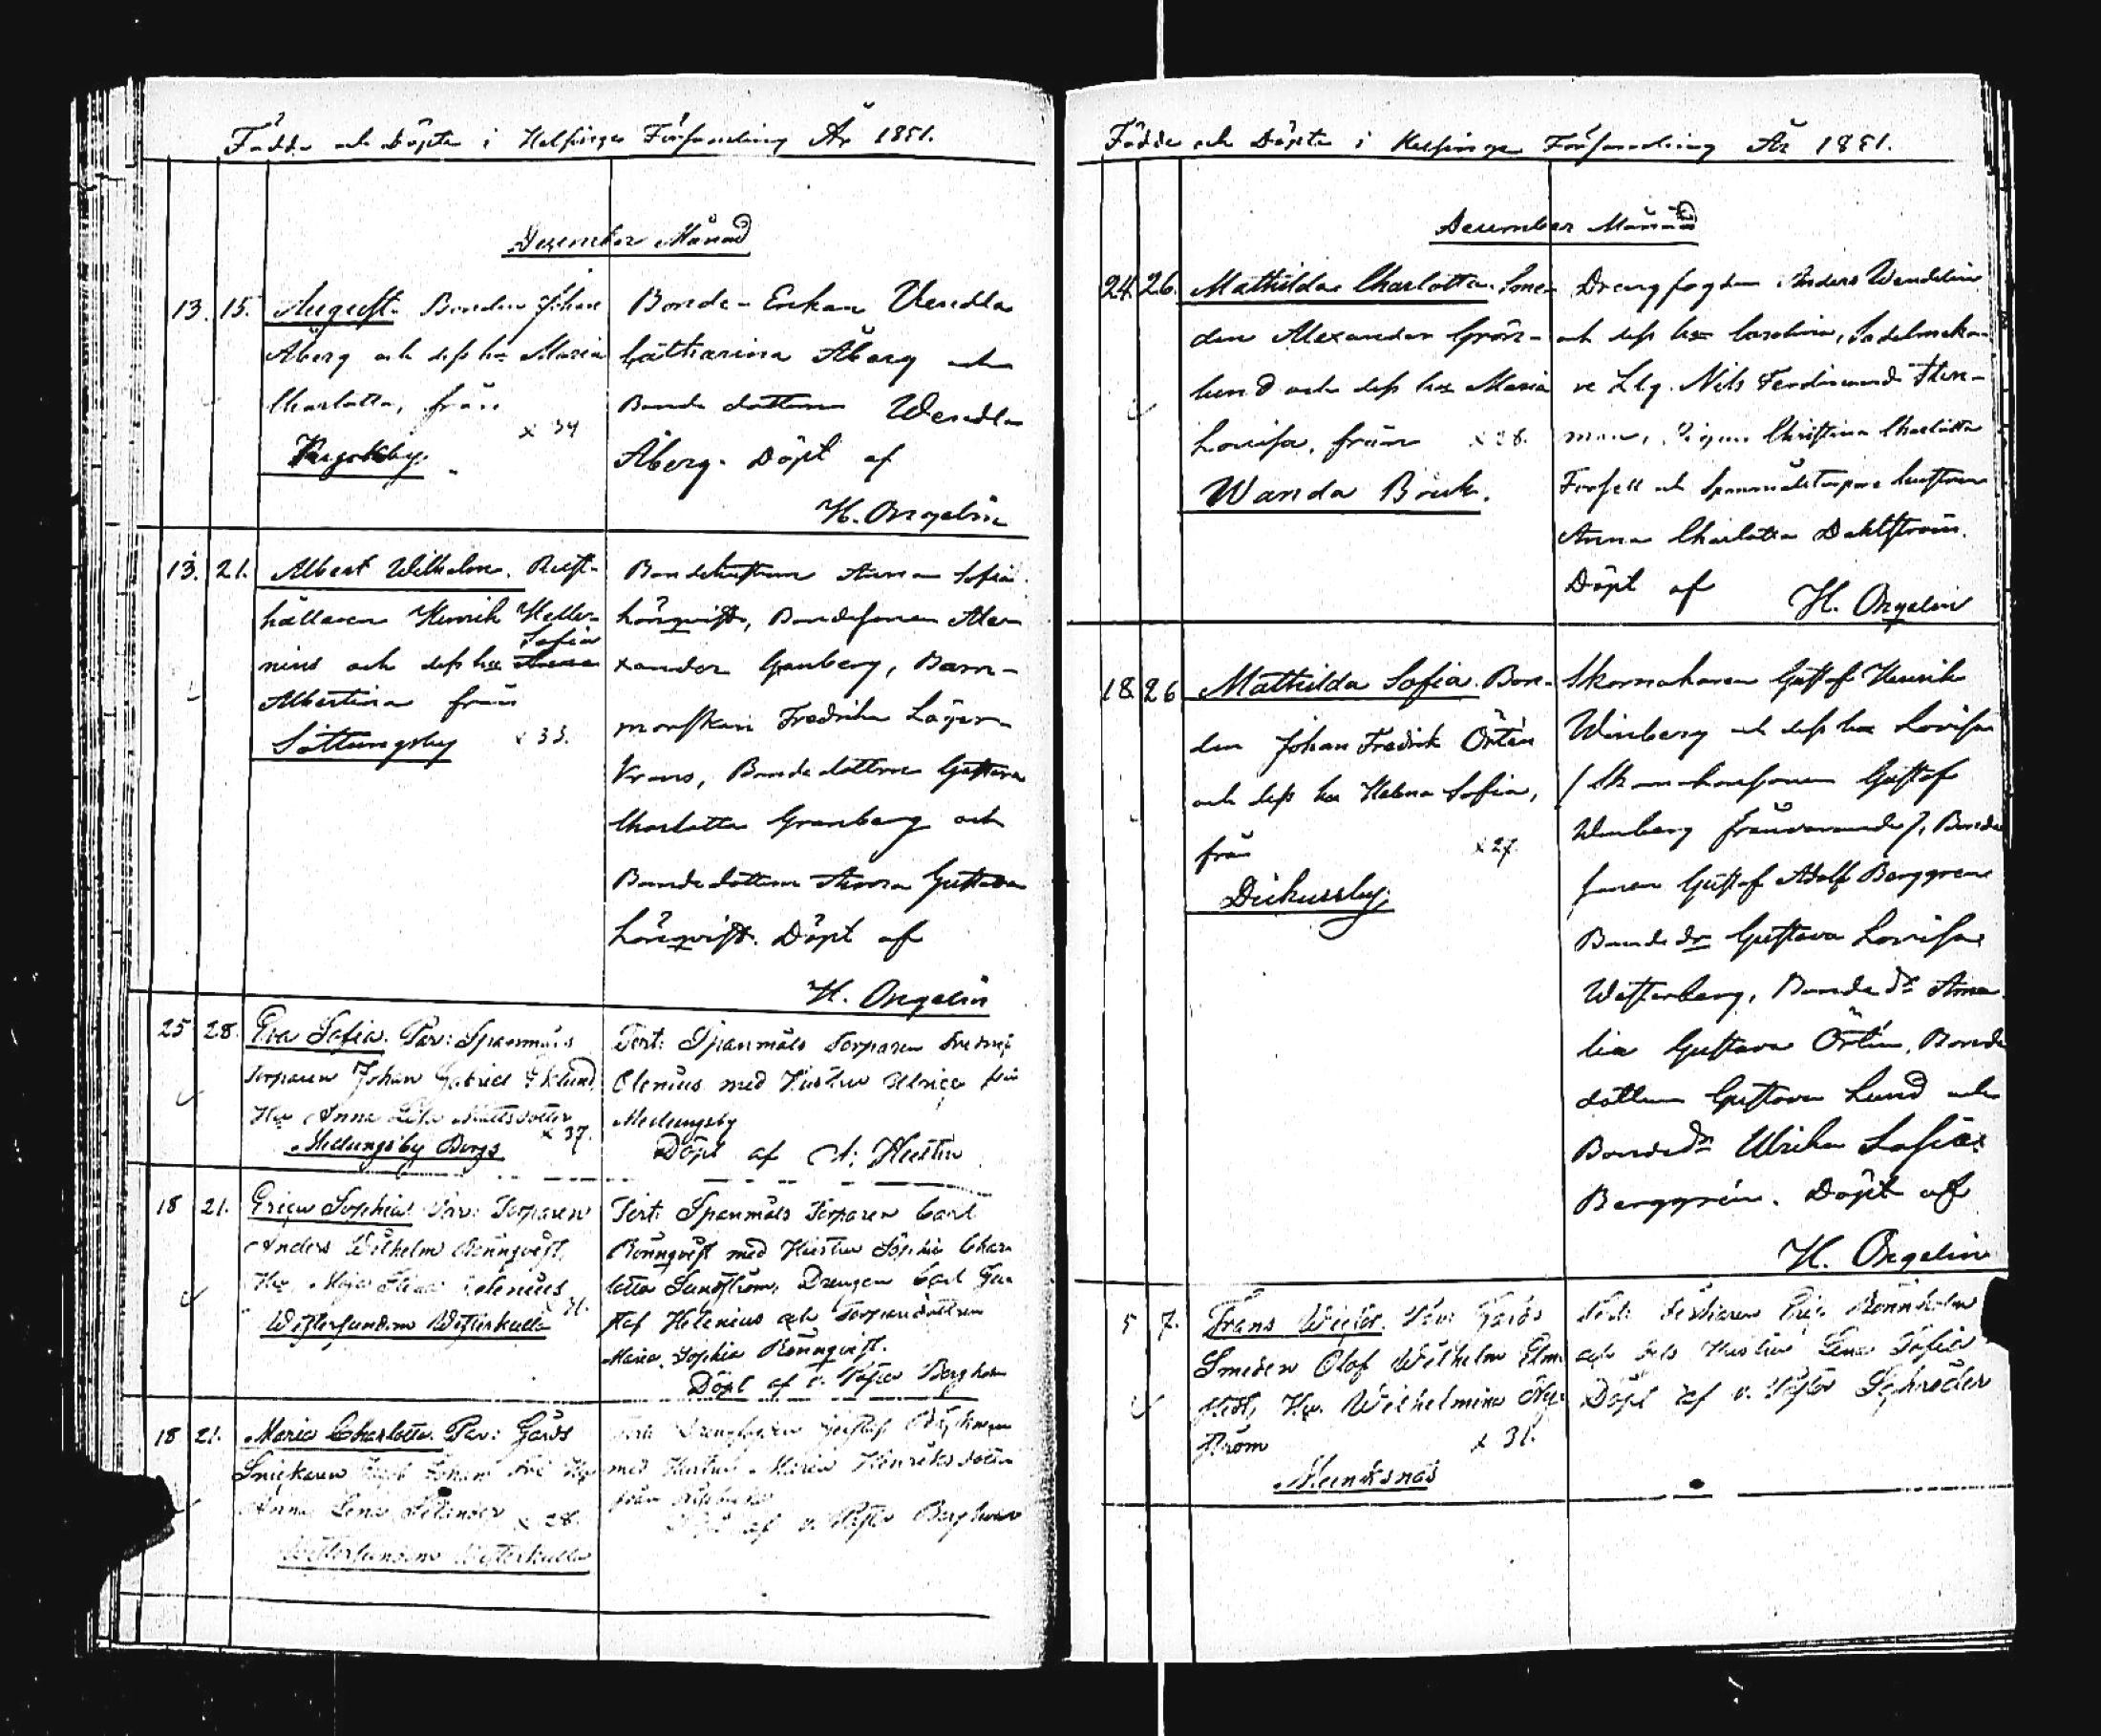 Födde och Döpte i Helsinge Församling År 1851.
December Månad
13. 15. August. Bonden Johan
Åberg och dess hu Maria
Charlotta, från
x 34
Bonde-Enkan Vendla
Catharina Åberg och
Bonde dottren Wendla
Åberg. Döpt af
H. Ongelin
13. 21. Albert Wilhelm. Rust-
hållaren Henrik Helle-
Sofia
nius och dess hu Anna
Albertina från
Sottungsby x 33.
Bondehustrun Anna Sofia
Lönqvist, Bondesonen Alex
xander Granberg, Barn-
morskan Fredrika Lager
krans, Bondedottren Gustava
Charlotta Granberg och
Bondedottren Anna Gustava
Lönqvist. Döpt af
H. Ongelin
25 28. Eva Sofia. Par: Spanmåls
Torparen Johan Gabriel Eklund,
Hu Anna Lisa Mattsdotter
x 37.
Mellungsby Borgs
Test: Spanmåls Torparen
Olenius med Hustru Ulrica från
Mellungsby
Döpt af A: Hustin
18 21. Erica Sophia. Par: Torparen
Anders Wilhelm Rönnqvist,
Hu Maja Stina Helenius
x 31.
Westersundom Westerkulla
Test: Spanmåls Torparen Carl
Rönnqvist med Hustru Sophia Char
lotta Sundström, Drengen Carl Gu
staf Helenius och Torparedottren
Maria Sophia Rönnqvist.
Döpt af v. Pastor Bergholm
18 21. Maria Charlotta. Par: Gårds
Snickaren Johan Hu
Anna Lena x 28.
Westersundom Westerkulla
Test: Drengfogden Gustaf
med Hustru Maria Henriksdotter
från
Döpt af v. Pastor Bergholm
Födde och Döpte i Helsinge Församling År 1851.
December Månad
24. 26. Mathilda Charlotta.
den Alexander Grön-
lund och dess hu Maria
Lovisa, från x 28.
Wanda Bruk.
Drengfogden Anders Wendelin
och dess hu Carolina, Sadelmaka-
re Llg. Nils Ferdinand Sten-
man, Pigan Christina Charlotta
Forsell och Spanmålstorpare hustrun
Anna Charlotta Dahlström.
Döpt af H. Ongelin
18 26 Mathilda Sofia. Bon-
den Johan Fredrik Örtén
och dess hu Helena Sofia,
från x 27.
Dickursby.
Skomakaren Gustaf Henrik
Winberg och dess hu Lovisa
(Skomakaresonen Gustaf
Winberg frånvarande), Bonde
sonen Gustaf Adolf Berggren
Bonde dr Gustava Lovisa
Westerberg, Bonde dr Ama
lia Gustava Örtén, Bonde
dottren Gustava Lund och
Bonde dr Ulrika Sofia
Berggrén. Döpt af
H. Ongelin
5 7. Frans Victor. Par: Gårds
Smeden Olof Wilhelm Elm
stedt, Hu. Wilhelmina
ström x 31.
Munksnäs
Test: Fiskaren Eric Rönnholm
och dess Hustru Lena Sofia
Döpt af v. Pastor Schröder